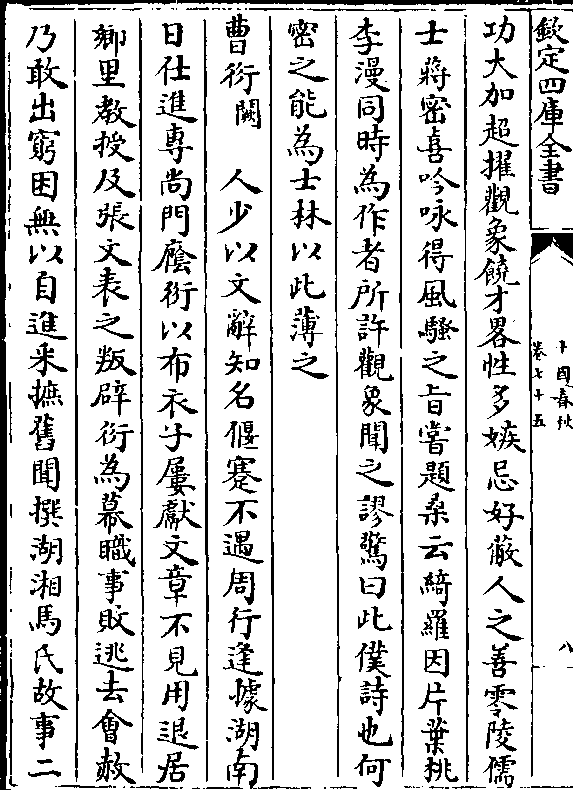 欽定四庫全書
十國春秋
卷七十五
八
功大加超擢觀象饒才畧性多嫉忌好蔽人之善零陵儒
士蔣密喜吟咏得風騷之旨嘗題桑云綺羅因片葉桃
李漫同時為作者所許觀象聞之謬驚曰此僕詩也何
密之能為士林以此薄之
曹衍闕　人少以文辭知名偃蹇不遇周行逢據湖南
日仕進專尚門廕衍以布衣子屢獻文章不見用退居
鄉里教授及張文表之叛辟衍為幕職事敗逃去會赦
乃敢出窮困無以自進采摭舊聞撰湖湘馬氏故事二